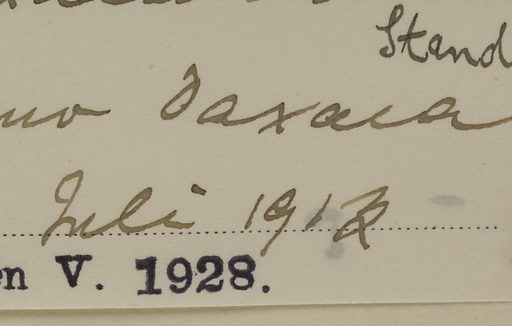 Stand
Oaxaca
Juli 191
en V. 1928.